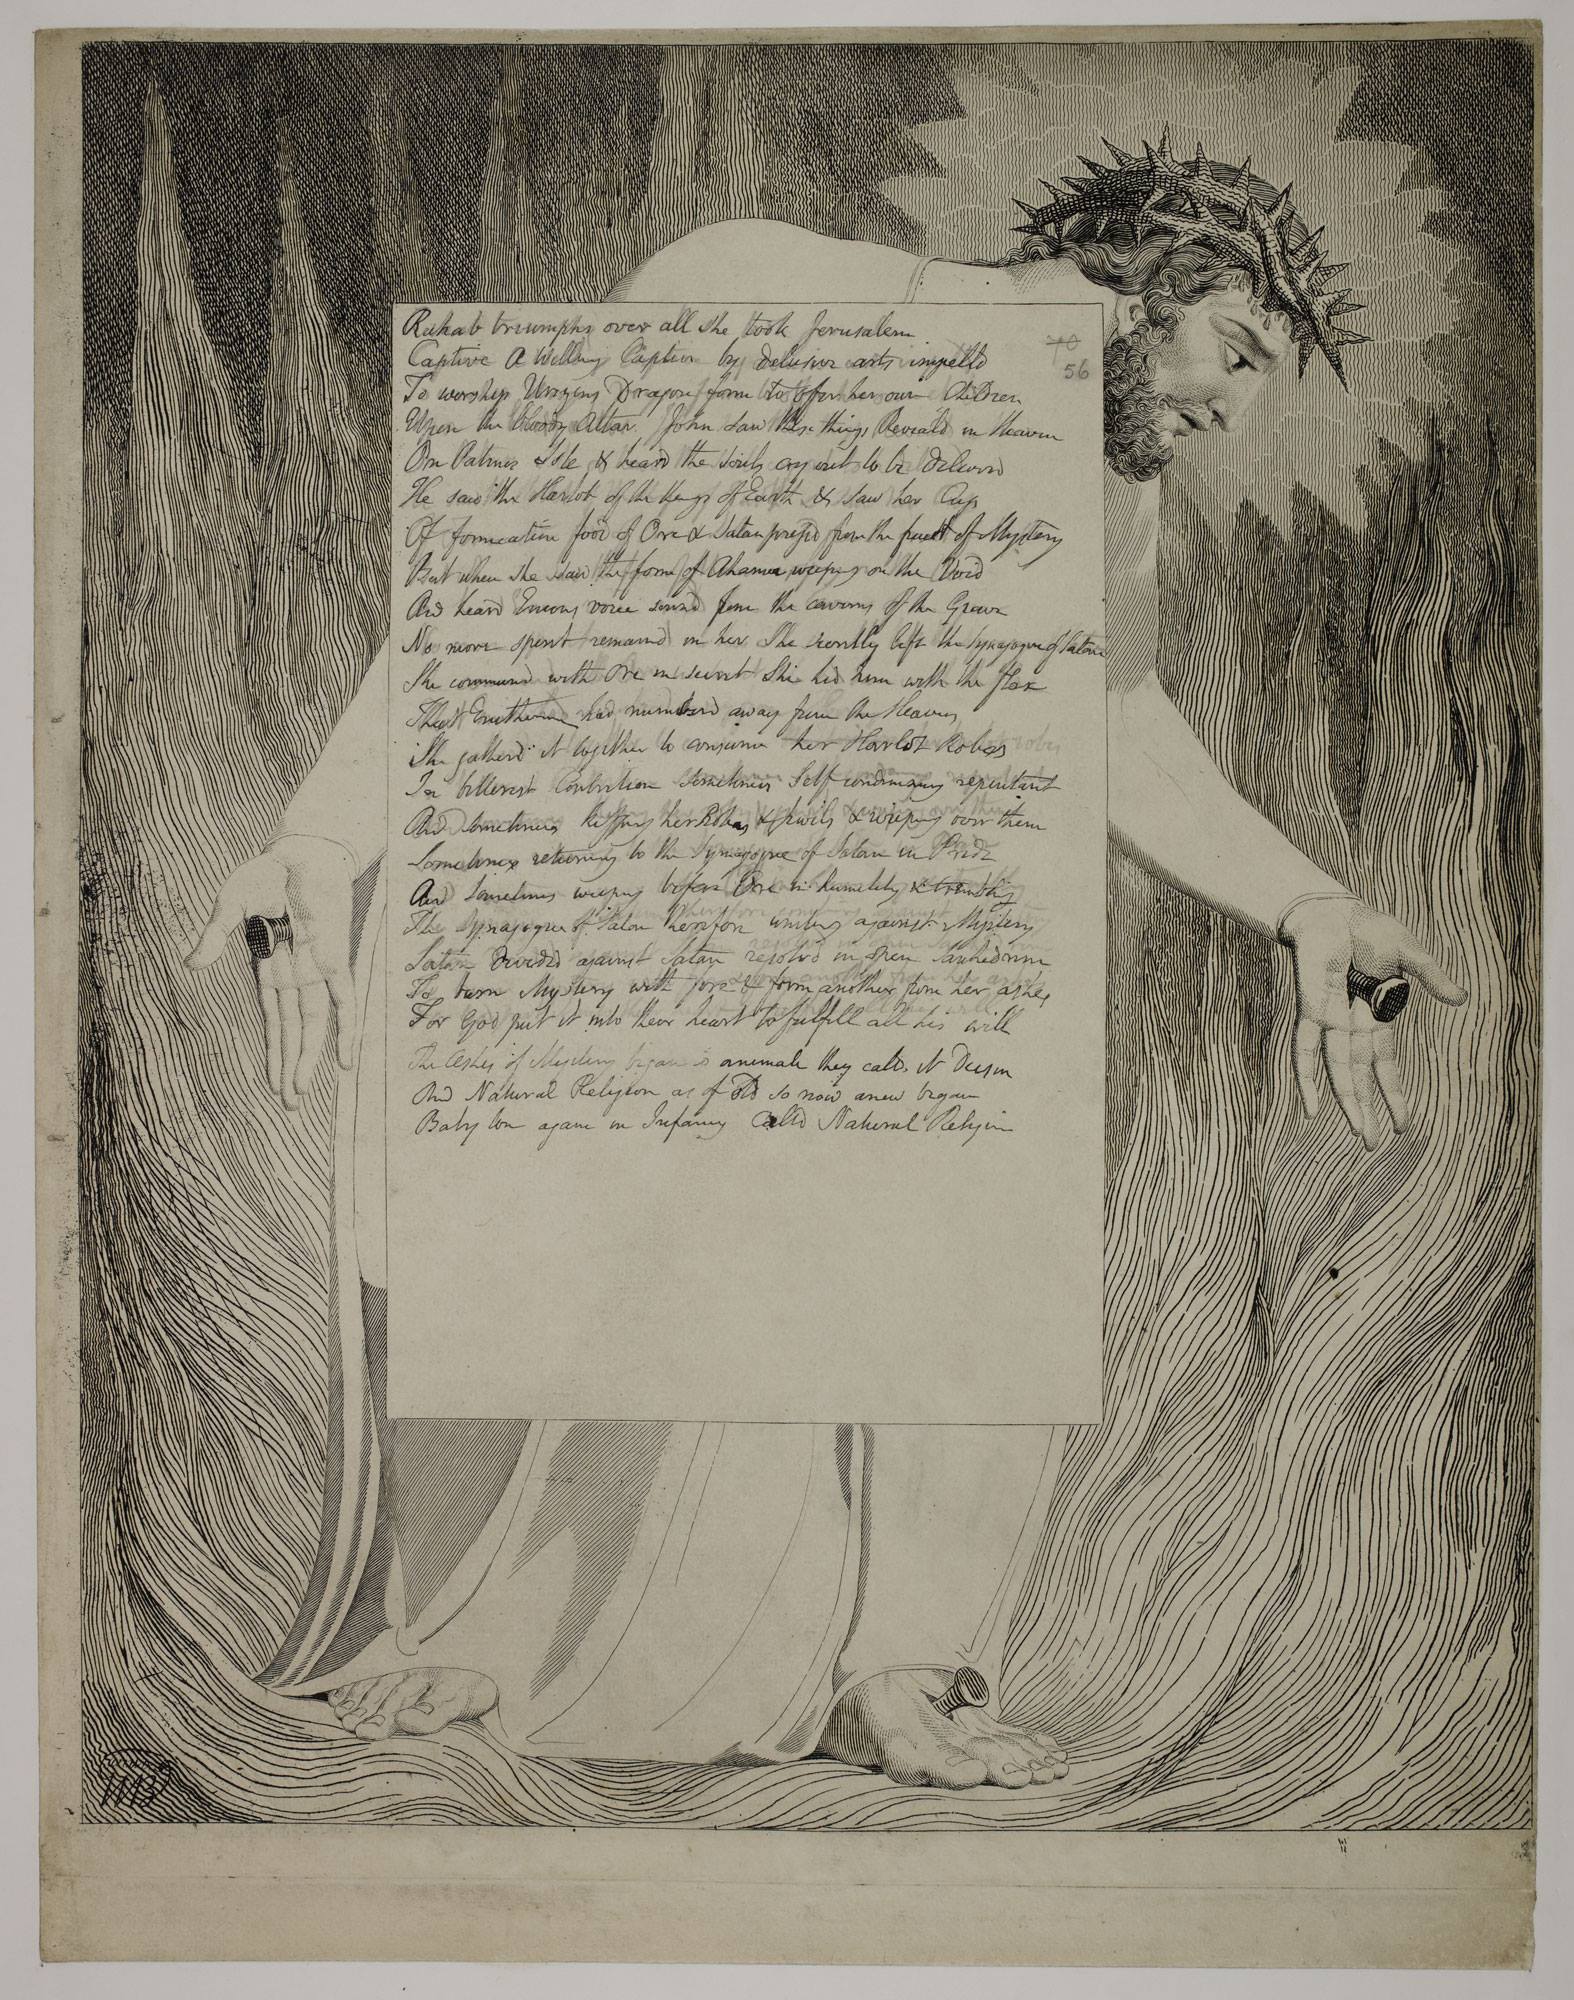 Rahab triumphs over all she took Jerusalem
Captive A Willing Captive by delusive arts impelld
To worship Urizens Dragon form to offer her own Children
Upon the bloody Altar. John Saw these things Reveald in Heaven
On Patmos Isle & heard the Souls cry out to be deliverd
He saw the Harlot of the Kings of Earth & saw her Cup
Of fornication food of Orc & Satan pressd from the fruit of Mystery
But when she saw the form of Ahania weeping on the Void
And heard Enions voice sound from the caverns of the Grave
No more spirit remaind in her She secretly left the Synagogue of Satan
She commund with Orc in secret She hid him with the flax
That Enitharmon had numberd away from the Heavens
She gatherd it together to consume her Harlot Robes
In bitterest Contrition sometimes Self condemning repentant
And Sometimes kissing her Robes & Jewels & weeping over them
Sometimes returning to the Synagogue of Satan in Pride
And Sometimes weeping before Orc in humility & trembling
The Synagogue of Satan therefore uniting against Mystery
Satan divided against Satan resolvd in open Sanhedrim
To burn Mystery with fire & form another from her ashes
For God put it into their heart to fulfill all his will
The Ashes of Mystery began to animate they calld it Deism
And Natural Religion as of old so now anew began
Babylon again in Infancy Calld Natural Religion
70
56